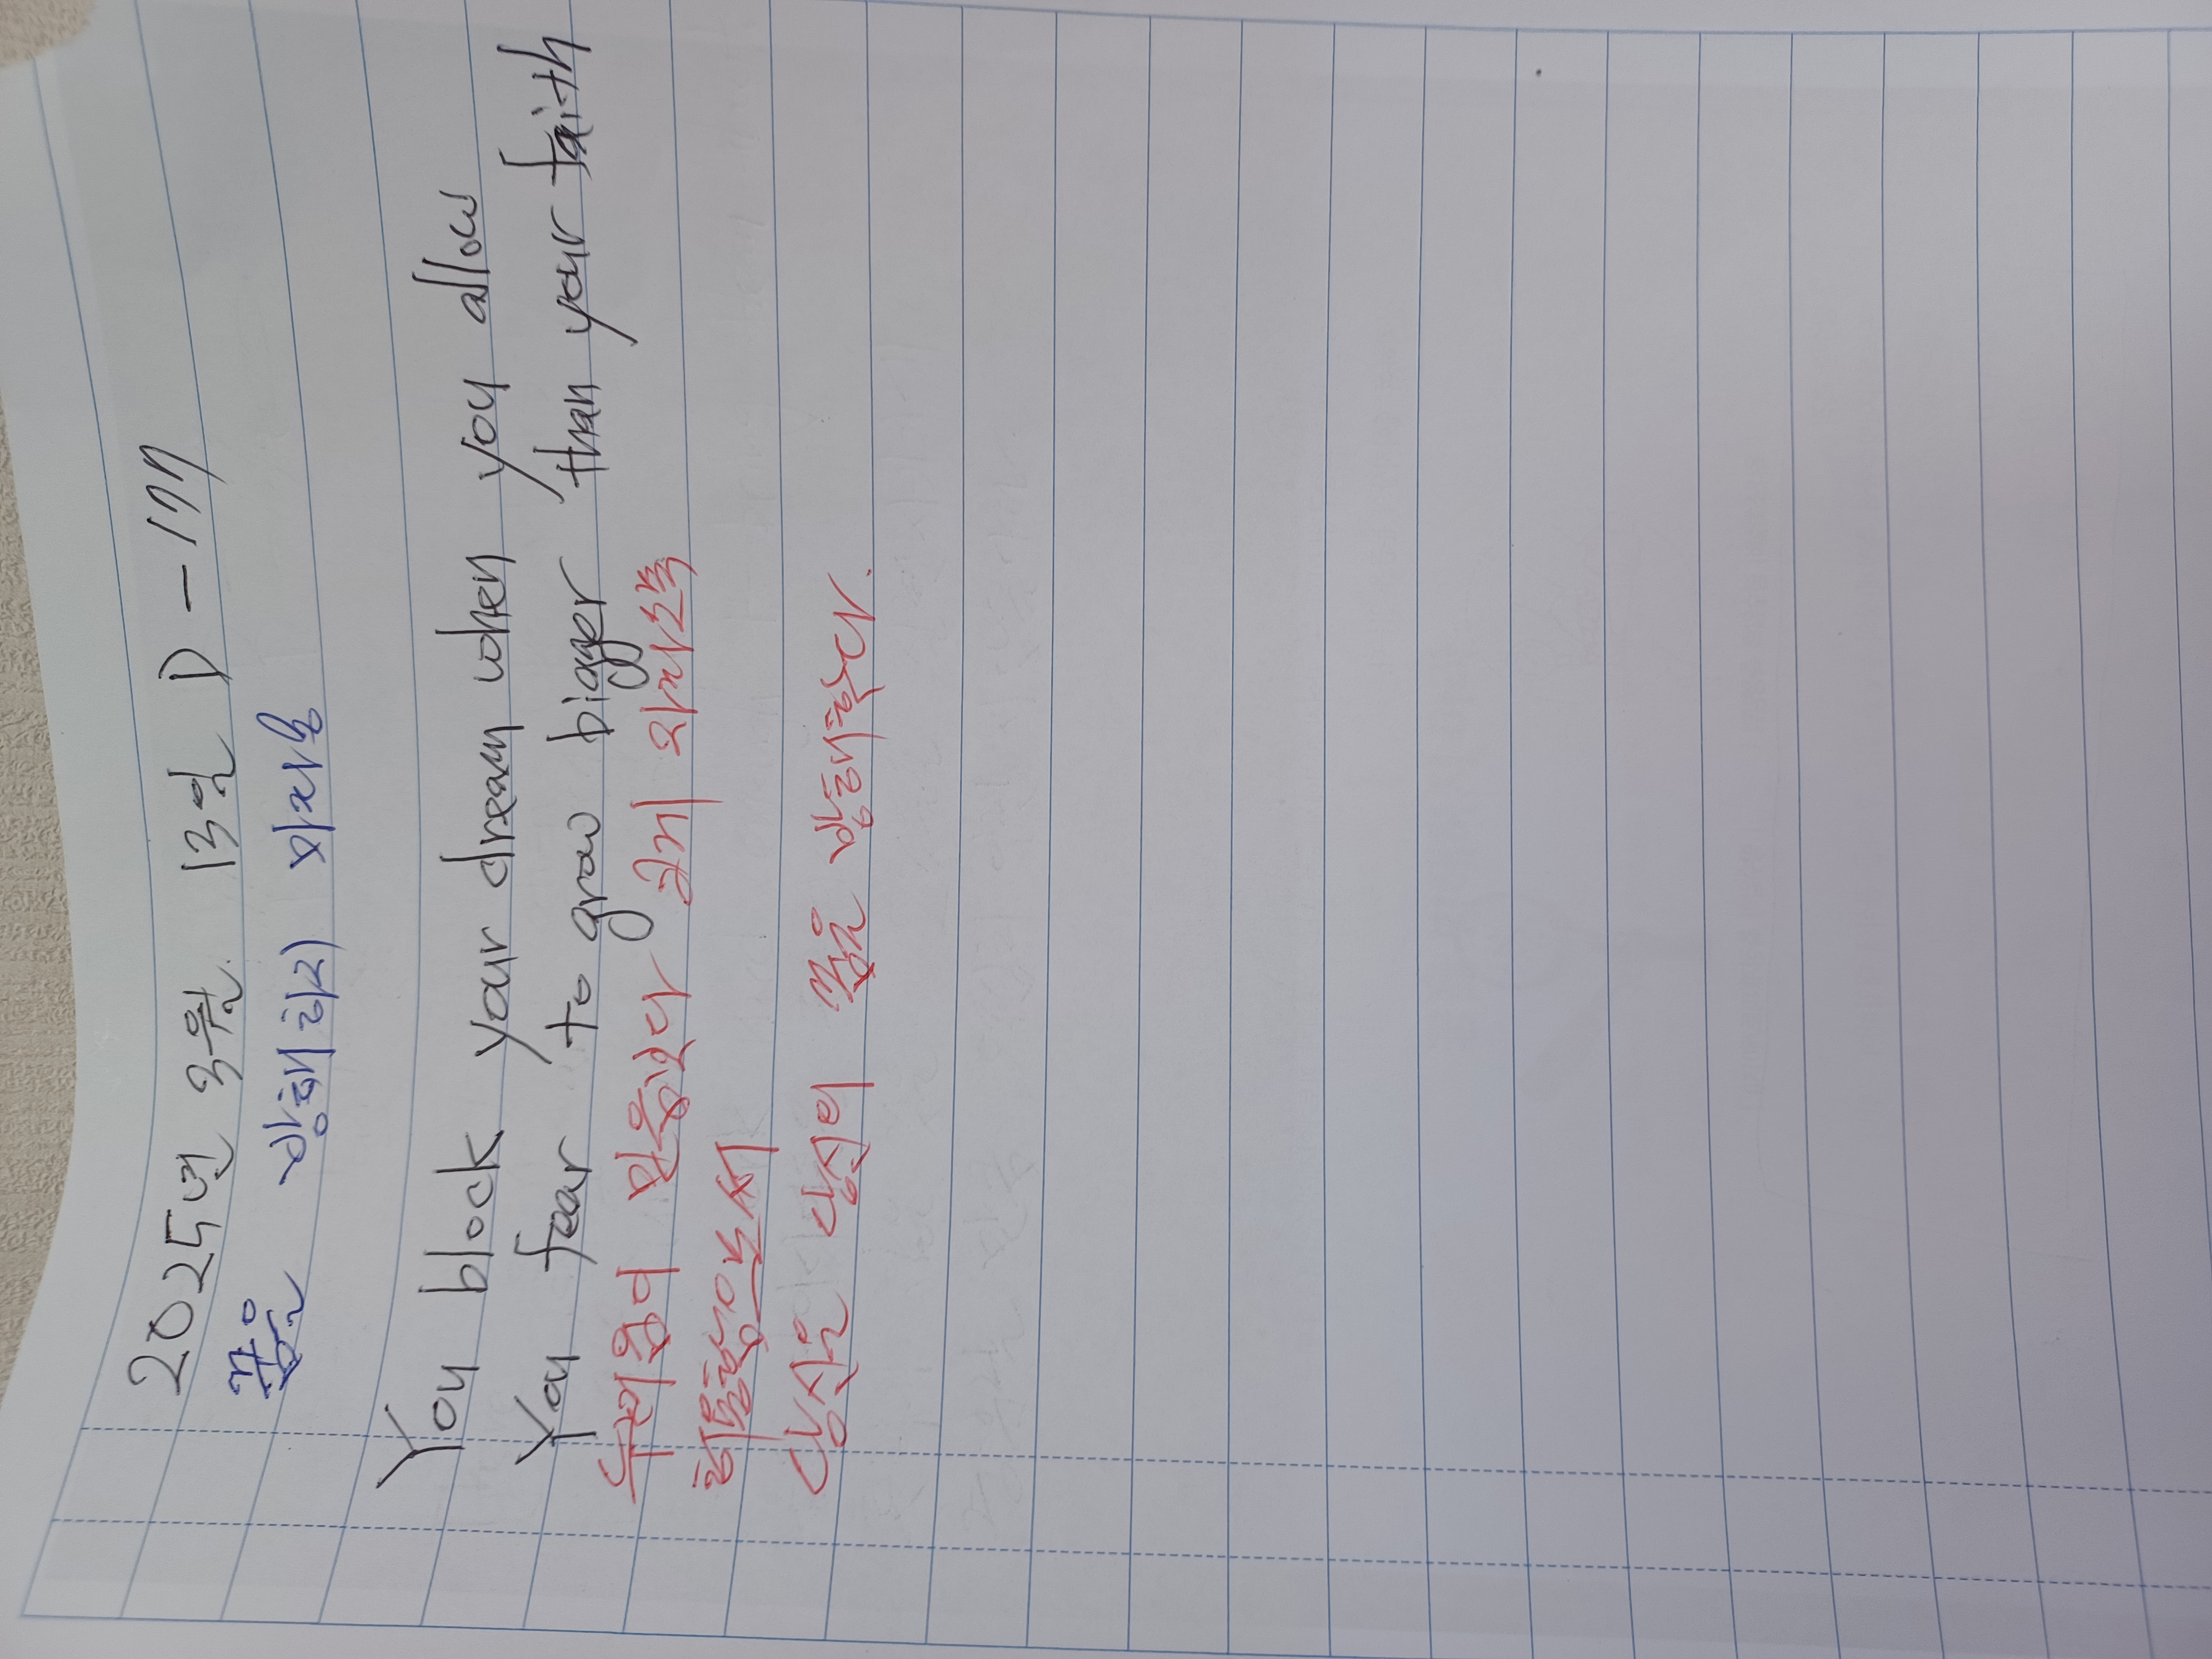 2025년 3월 13일 D-177
꿈을 방해하고
You block your dream when you allow
You fear to grow bigger than your faith
두려움이 믿음보다 크게
허용함으로써
당신은 당신의 꿈을 방해한다.